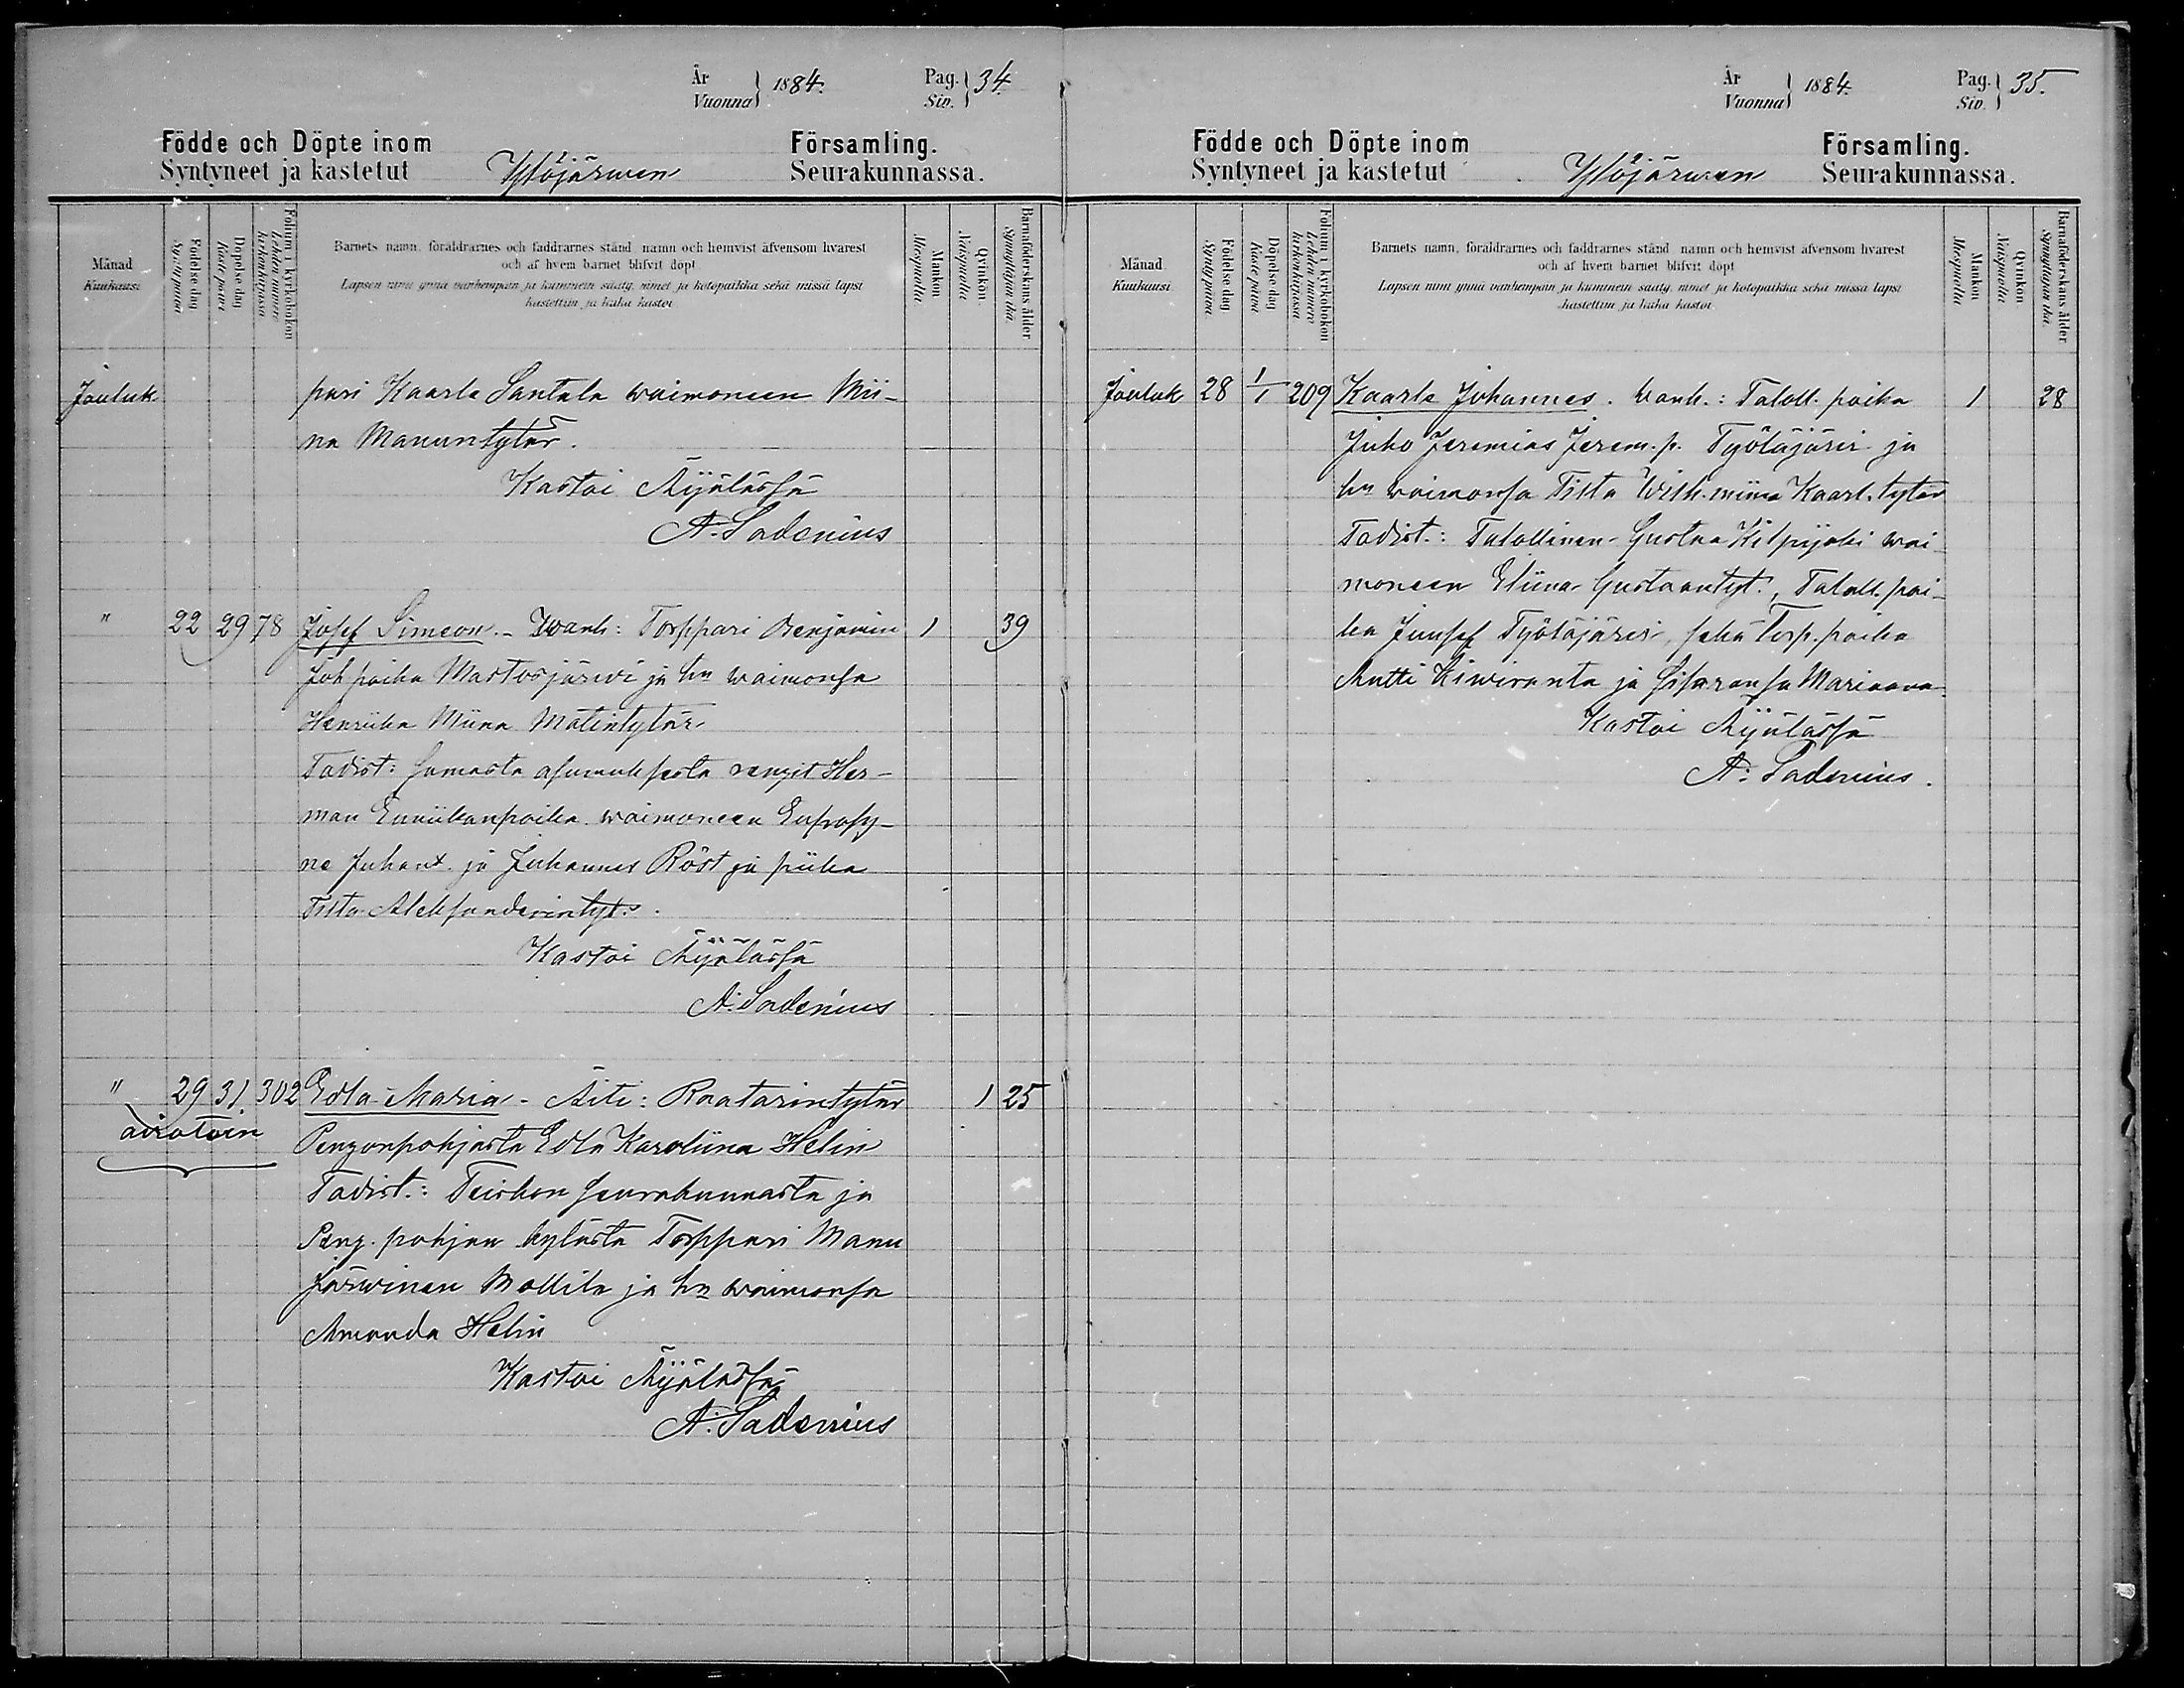 År Vuonna } 1884. Pag. Siv. } 34.
Födde och Döpte inom Församling.
Syntyneet ja kastetut Ylöjärwen Seurakunnassa.
Månad Kuukausi
Födelse dag Syntypäivä
Döpelse dag Kaste päivä
Folium i kyrkobokon Lehden numero kirkonkirjassa
Barnets namn, föräldrarnes och faddrarnes stånd namn och hemvist äfvensom hvarest
och af hvem barnet blifvit döpt
Lapsen nimi ynnä vanhempain ja kummein sääty, nimet ja kotopaikka sekä missä lapsi
kastettiin ja kuka kastoi
Mankön Miespuolia
Qvinkön Naispuolia
Barnaföderskans ålder Synnyttäjän ikä
Jouluk. pari Kaarle Santala waimoneen Mii-
na Manuntytär.
Kastoi Äijälässä
A. Sadenius
" 22 29 78 Josef Simeon. - Wanh: Torppari Benjamin 1 39
Joh poika Mastosjärwi ja hn waimonsa
Henriika Miina Matintytär
Todist: samasta asumuksesta rengit Her-
man Enniikanpoika waimoneen Eufrosy-
ne Juhant. ja Juhannes Röst ja piika
Tilta Aleksanderintyt.
Kastoi Äijälässä
A. Sadenius
" 29 31 302 Edla Maria - Äiti: Raatarintytär 1 25
aviotoin Pengonpohjasta Edla Karoliina Helin
Todist.: Teiskon seurakunnasta ja
Peng. pohjan kylästä Torppari Manu
Järwinen Mollila ja hn waimonsa
Amanda Helin
Kastoi Äijälässä
A. Sadenius
År Vuonna } 1884. Pag. Siv. } 35.
Födde och Döpte inom Församling.
Syntyneet ja kastetut Ylöjärwen Seurakunnassa.
Månad Kuukausi
Födelse dag Syntypäivä
Döpelse dag Kaste päivä
Folium i kyrkobokon Lehden numero kirkonkirjassa
Barnets namn, föräldrarnes och faddrarnes stånd namn och hemvist äfvensom hvarest
och af hvem barnet blifvit döpt
Lapsen nimi ynnä vanhempain ja kummein sääty, nimet ja kotopaikka sekä missä lapsi
kastettiin ja kuka kastoi
Mankön Miespuolia
Qvinkön Naispuolia
Barnaföderskans ålder Synnyttäjän ikä
Jouluk 28 1/1 209 Kaarle Johannes. Wanh.: Taloll. poika 1 28
Juho Jeremias Jerem. p. Työläjärvi ja
hn waimonsa Tilta Wilh.miina Kaarl. tytär
Todist.: Talollinen Gustaa Kilpijoki wai
moneen Eliina Gustaantyt., Taloll. poi-
ka Juusef Työläjärvi, sekä Torp. poika
Matti Kiwiranta ja sisaransa Mariaana
Kastoi Äijälässä
A. Sadenius.